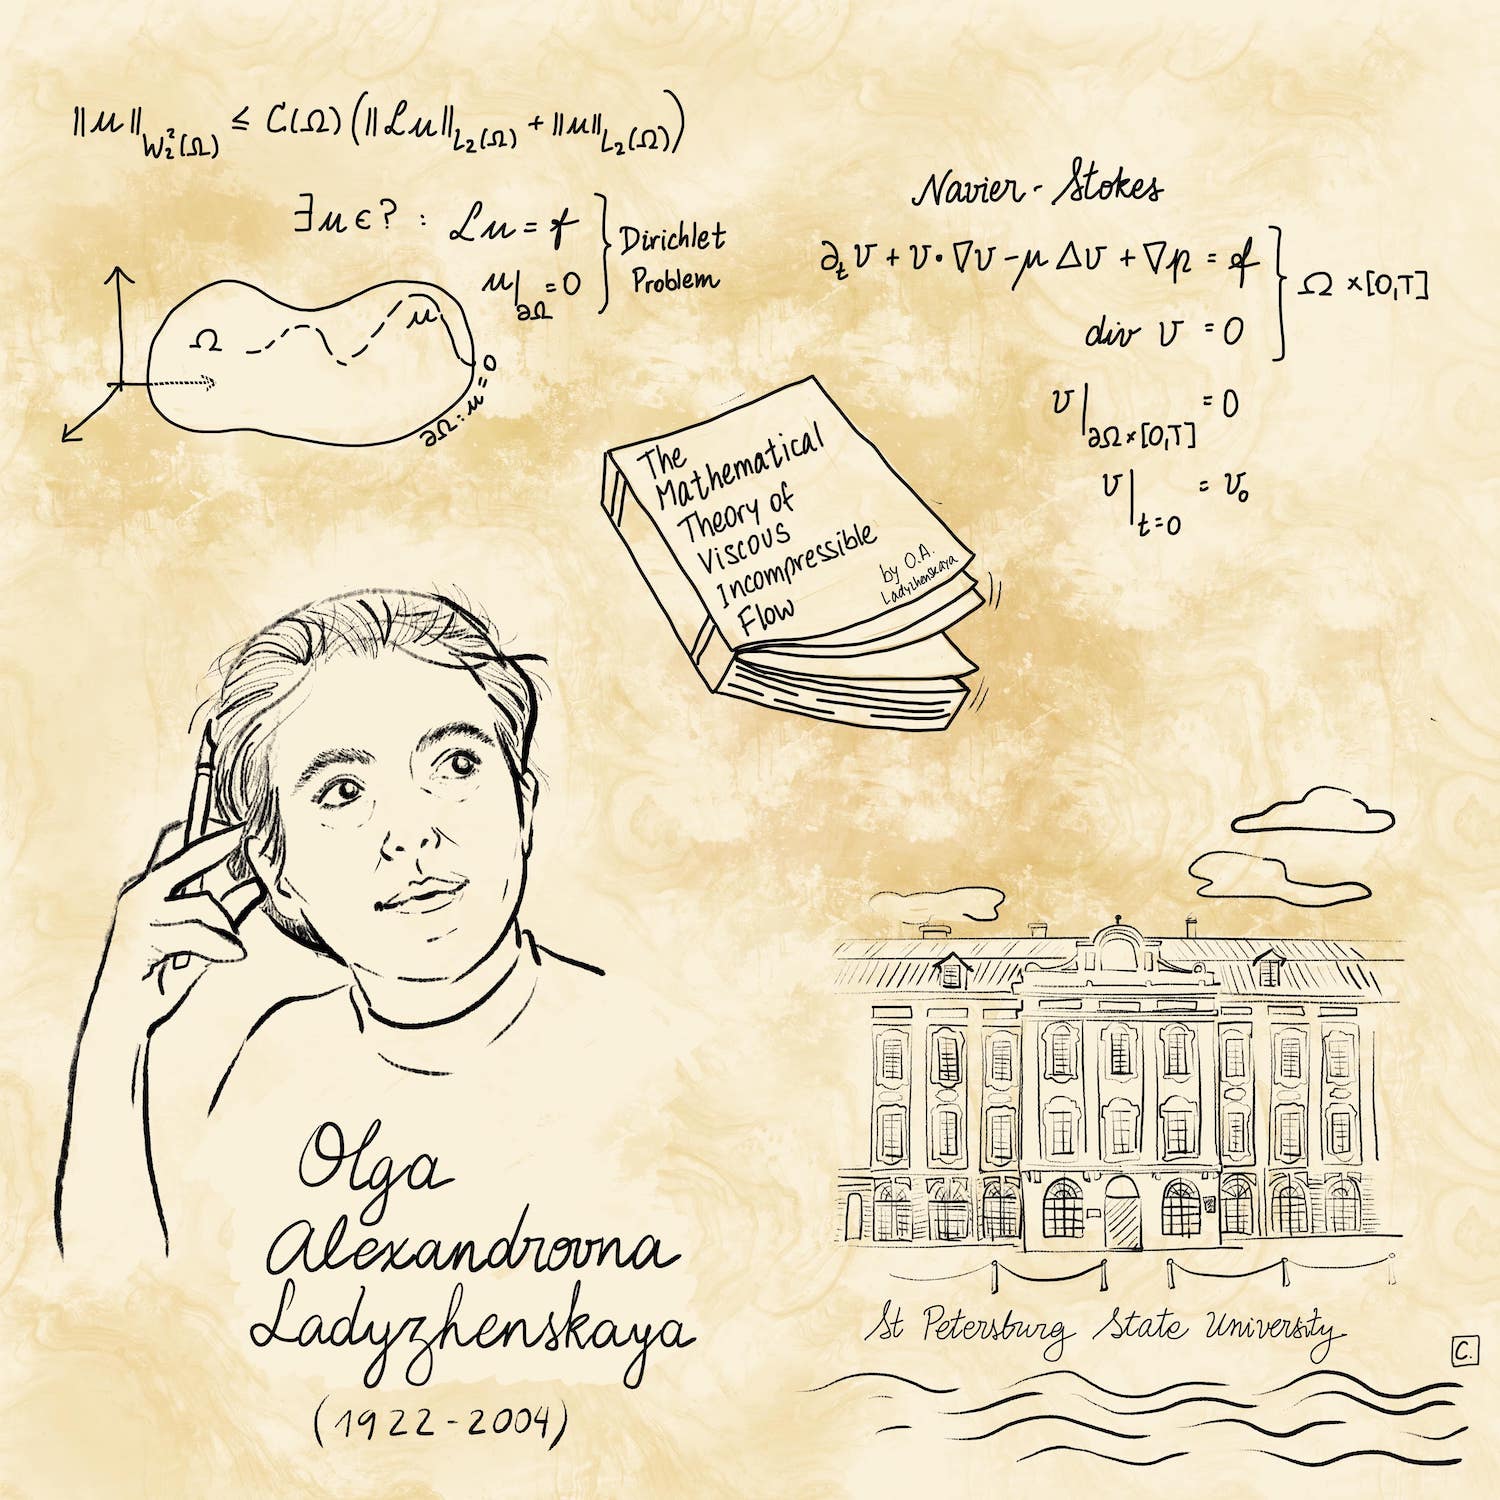 ‖u‖_{W₂²(Ω)} ≤ C(Ω)(‖ℒu‖_{L₂(Ω)} + ‖u‖_{L₂(Ω)})
∃u∈? : ℒu = f } Dirichlet Problem
u|_{∂Ω} = 0
Ω
u
∂Ω: u = 0
Navier-Stokes
∂ₜv + v·∇v - μΔv + ∇p = f } Ω×[0,T]
div v = 0
v|_{∂Ω×[0,T]} = 0
v|_{t=0} = v₀
The
Mathematical
Theory of
Viscous
Incompressible
Flow
by O.A.
Ladyzhenskaya
Olga
Alexandrovna
Ladyzhenskaya
(1922-2004)
St Petersburg State University
C.